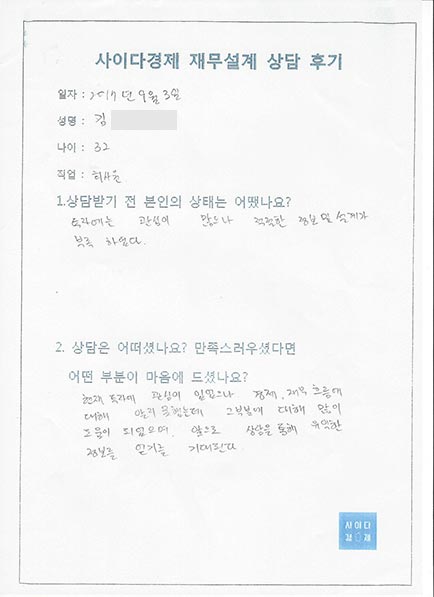 사이다경제 재무설계 상담 후기
일자 : 2017년 9월 3일
성명 : 김
나이 : 32
직업 : 회사원
1.상담받기 전 본인의 상태는 어땠나요?
투자에는 관심이 많으나 적절한 정보 및 설계가
부족 하였다.
2. 상담은 어떠셨나요? 만족스러우셨다면
어떤 부분이 마음에 드셨나요?
현재 투자에 관심이 있었으나 경제, 재무 흐름에
대해 알지 못했는데 그부분에 대해 많이
도움이 되었으며, 앞으로 상담을 통해 유익한
정보를 얻기를 기대한다.
사이다
경제